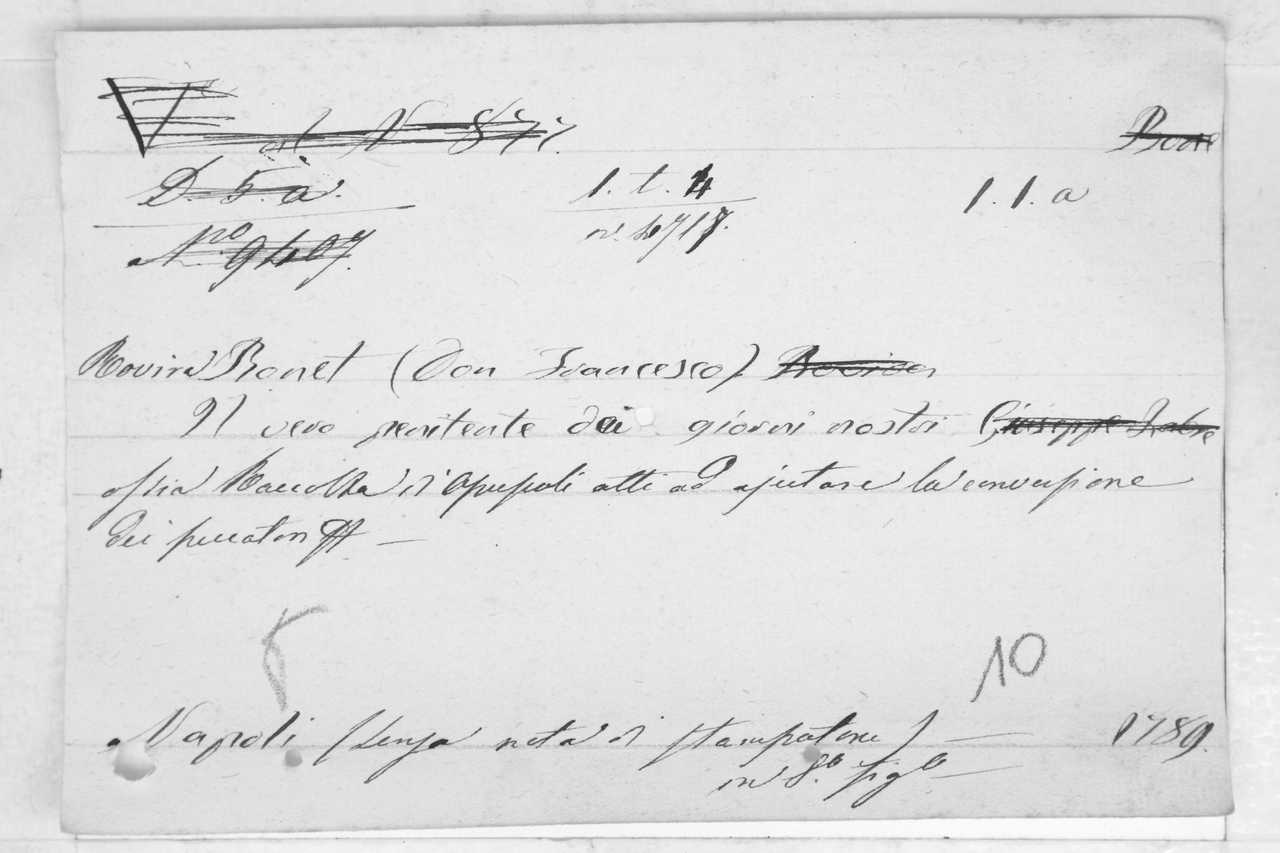 al N 877.
D. 5. a. 1. t. 4 1. 1. a
Nro 9407. n. 4717.
Rovira Bonet (Don Francesco)
Il vero penitente dei giorni nostri Giuseppe Labre
ossia Raccolta di Opuscoli atti ad ajutare la conversione
dei peccatori
10
Napoli (senza nota di stampatore) — 1789.
in 8.º figº —